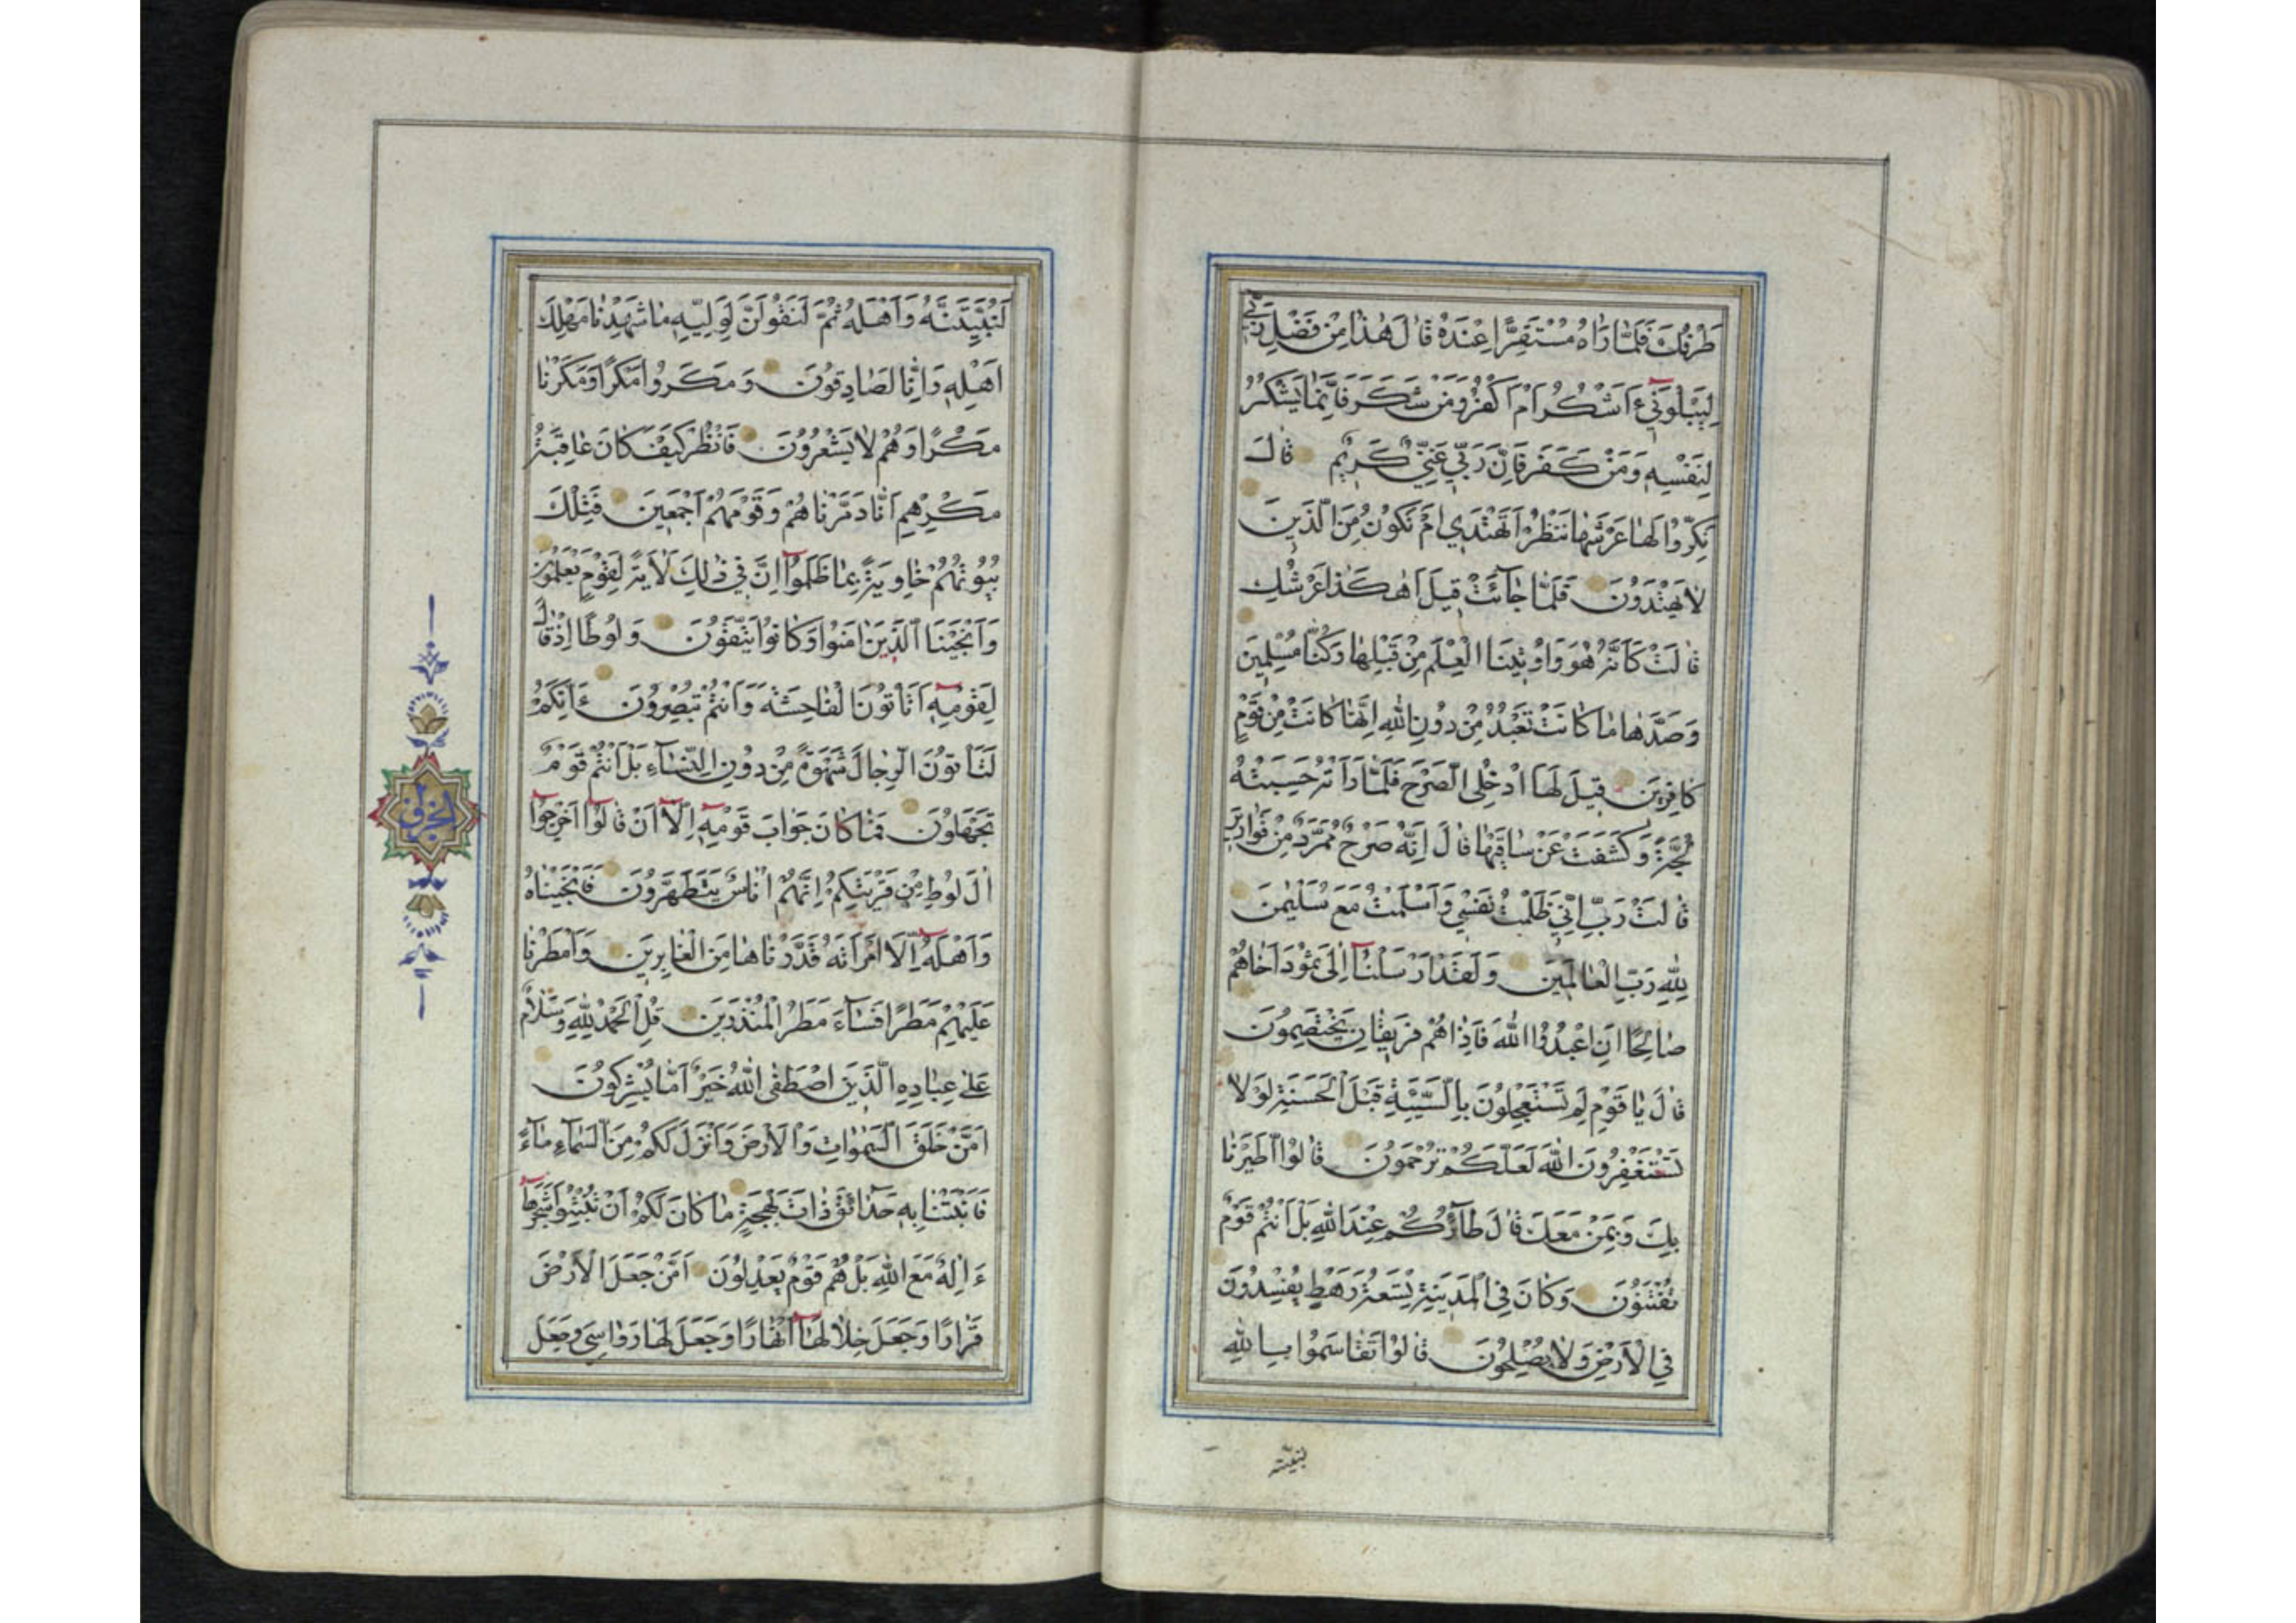 طَرْفُكَ فَلَمَّا رَاٰهُ مُسْتَقِرًّا عِنْدَهُ قٰالَ هٰذٰا مِنْ فَضْلِ رَبّٖي
لِيَبْلُوَنٖي ءَاَشْكُرُ اَمْ اَكْفُرُ وَمَنْ شَكَرَ فَاِنَّمٰا يَشْكُرُ
لِنَفْسِهٖ وَمَنْ كَفَرَ فَاِنَّ رَبّٖي غَنِيٌّ كَرٖيمٌ قٰالَ
نَكِّرُوا لَهٰا عَرْشَهٰا نَنْظُرْ اَتَهْتَدٖي اَمْ تَكُونُ مِنَ الَّذٖينَ
لٰا يَهْتَدُونَ فَلَمّٰا جٰآئَتْ قٖيلَ اَهٰكَذٰا عَرْشُكِ
قٰالَتْ كَاَنَّهُ هُوَ وَاُوتٖينَا الْعِلْمَ مِنْ قَبْلِهٰا وَكُنّٰا مُسْلِمٖينَ
وَصَدَّهٰا مٰا كٰانَتْ تَعْبُدُ مِنْ دُونِ اللهِ اِنَّهٰا كٰانَتْ مِنْ قَوْمٍ
كٰافِرٖينَ قٖيلَ لَهَا ادْخُلِى الصَّرْحَ فَلَمّٰا رَاَتْهُ حَسِبَتْهُ
لُجَّةً وَكَشَفَتْ عَنْ سٰاقَيْهٰا قٰالَ اِنَّهُ صَرْحٌ مُمَرَّدٌ مِنْ قَوٰارٖيرَ
قٰالَتْ رَبِّ اِنّٖي ظَلَمْتُ نَفْسٖي وَاَسْلَمْتُ مَعَ سُلَيْمٰنَ
لِلّٰهِ رَبِّ الْعٰالَمٖينَ وَلَقَدْ اَرْسَلْنٰآ اِلٰى ثَمُودَ اَخٰاهُمْ
صٰالِحًا اَنِ اعْبُدُوا اللهَ فَاِذٰا هُمْ فَرٖيقٰانِ يَخْتَصِمُونَ
قٰالَ يٰا قَوْمِ لِمَ تَسْتَعْجِلُونَ بِالسَّيِّئَةِ قَبْلَ الْحَسَنَةِ لَوْلٰا
تَسْتَغْفِرُونَ اللهَ لَعَلَّكُمْ تُرْحَمُونَ قٰالُوا اطَّيَّرْنٰا
بِكَ وَبِمَنْ مَعَكَ قٰالَ طٰآئِرُكُمْ عِنْدَ اللهِ بَلْ اَنْتُمْ قَوْمٌ
تُفْتَنُونَ وَكٰانَ فِي الْمَدٖينَةِ تِسْعَةُ رَهْطٍ يُفْسِدُونَ
فِي الْاَرْضِ وَلٰا يُصْلِحُونَ قٰالُوا تَقٰاسَمُوا بِاللهِ
لَنُبَيِّتَنَّهُ وَاَهْلَهُ ثُمَّ لَنَقُولَنَّ لِوَلِيِّهٖ مٰا شَهِدْنٰا مَهْلِكَ
اَهْلِهٖ وَاِنّٰا لَصٰادِقُونَ وَمَكَرُوا مَكْرًا وَمَكَرْنٰا
مَكْرًا وَهُمْ لٰا يَشْعُرُونَ فَانْظُرْ كَيْفَ كٰانَ عٰاقِبَةُ
مَكْرِهِمْ اَنّٰا دَمَّرْنٰاهُمْ وَقَوْمَهُمْ اَجْمَعٖينَ فَتِلْكَ
بُيُوتُهُمْ خٰاوِيَةً بِمٰا ظَلَمُوا اِنَّ فٖي ذٰلِكَ لَاٰيَةً لِقَوْمٍ يَعْلَمُونَ
وَاَنْجَيْنَا الَّذٖينَ اٰمَنُوا وَكٰانُوا يَتَّقُونَ وَلُوطًا اِذْ قٰالَ
لِقَوْمِهٖ اَتَاْتُونَ الْفٰاحِشَةَ وَاَنْتُمْ تُبْصِرُونَ ءَاِنَّكُمْ
لَتَاْتُونَ الرِّجٰالَ شَهْوَةً مِنْ دُونِ النِّسٰآءِ بَلْ اَنْتُمْ قَوْمٌ
تَجْهَلُونَ فَمٰا كٰانَ جَوٰابَ قَوْمِهٖ اِلّٰا اَنْ قٰالُوا اَخْرِجُوا
اٰلَ لُوطٍ مِنْ قَرْيَتِكُمْ اِنَّهُمْ اُنٰاسٌ يَتَطَهَّرُونَ فَاَنْجَيْنٰاهُ
وَاَهْلَهُ اِلَّا امْرَاَتَهُ قَدَّرْنٰاهٰا مِنَ الْغٰابِرٖينَ وَاَمْطَرْنٰا
عَلَيْهِمْ مَطَرًا فَسٰآءَ مَطَرُ الْمُنْذَرٖينَ قُلِ الْحَمْدُ لِلّٰهِ وَسَلٰامٌ
عَلٰى عِبٰادِهِ الَّذٖينَ اصْطَفٰى اللهُ خَيْرٌ اَمّٰا يُشْرِكُونَ
اَمَّنْ خَلَقَ السَّمٰوٰاتِ وَالْاَرْضَ وَاَنْزَلَ لَكُمْ مِنَ السَّمٰآءِ مٰآءً
فَاَنْبَتْنٰا بِهٖ حَدٰآئِقَ ذٰاتَ بَهْجَةٍ مٰا كٰانَ لَكُمْ اَنْ تُنْبِتُوا شَجَرَهٰا
ءَاِلٰهٌ مَعَ اللهِ بَلْ هُمْ قَوْمٌ يَعْدِلُونَ اَمَّنْ جَعَلَ الْاَرْضَ
قَرٰارًا وَجَعَلَ خِلٰالَهٰا اَنْهٰارًا وَجَعَلَ لَهٰا رَوٰاسِيَ وَجَعَلَ